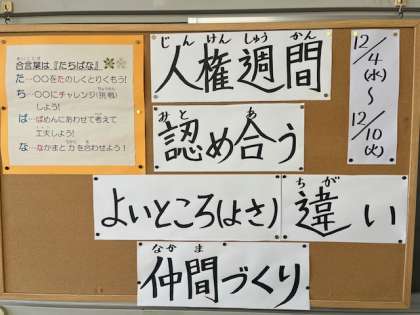 合言葉は『たちばな』
た…〇〇をたのしくとりくもう!
ち…〇〇にチャレンジ(挑戦)
しよう!
ば…ばめんにあわせて考えて
工夫しよう!
な…なかまと力を合わせよう!
じんけんしゅうかん
人権週間
12/4(水)
~
12/10(火)
みと あ
認め合う
よいところ(よさ)
ちが
違い
なかま
仲間づくり